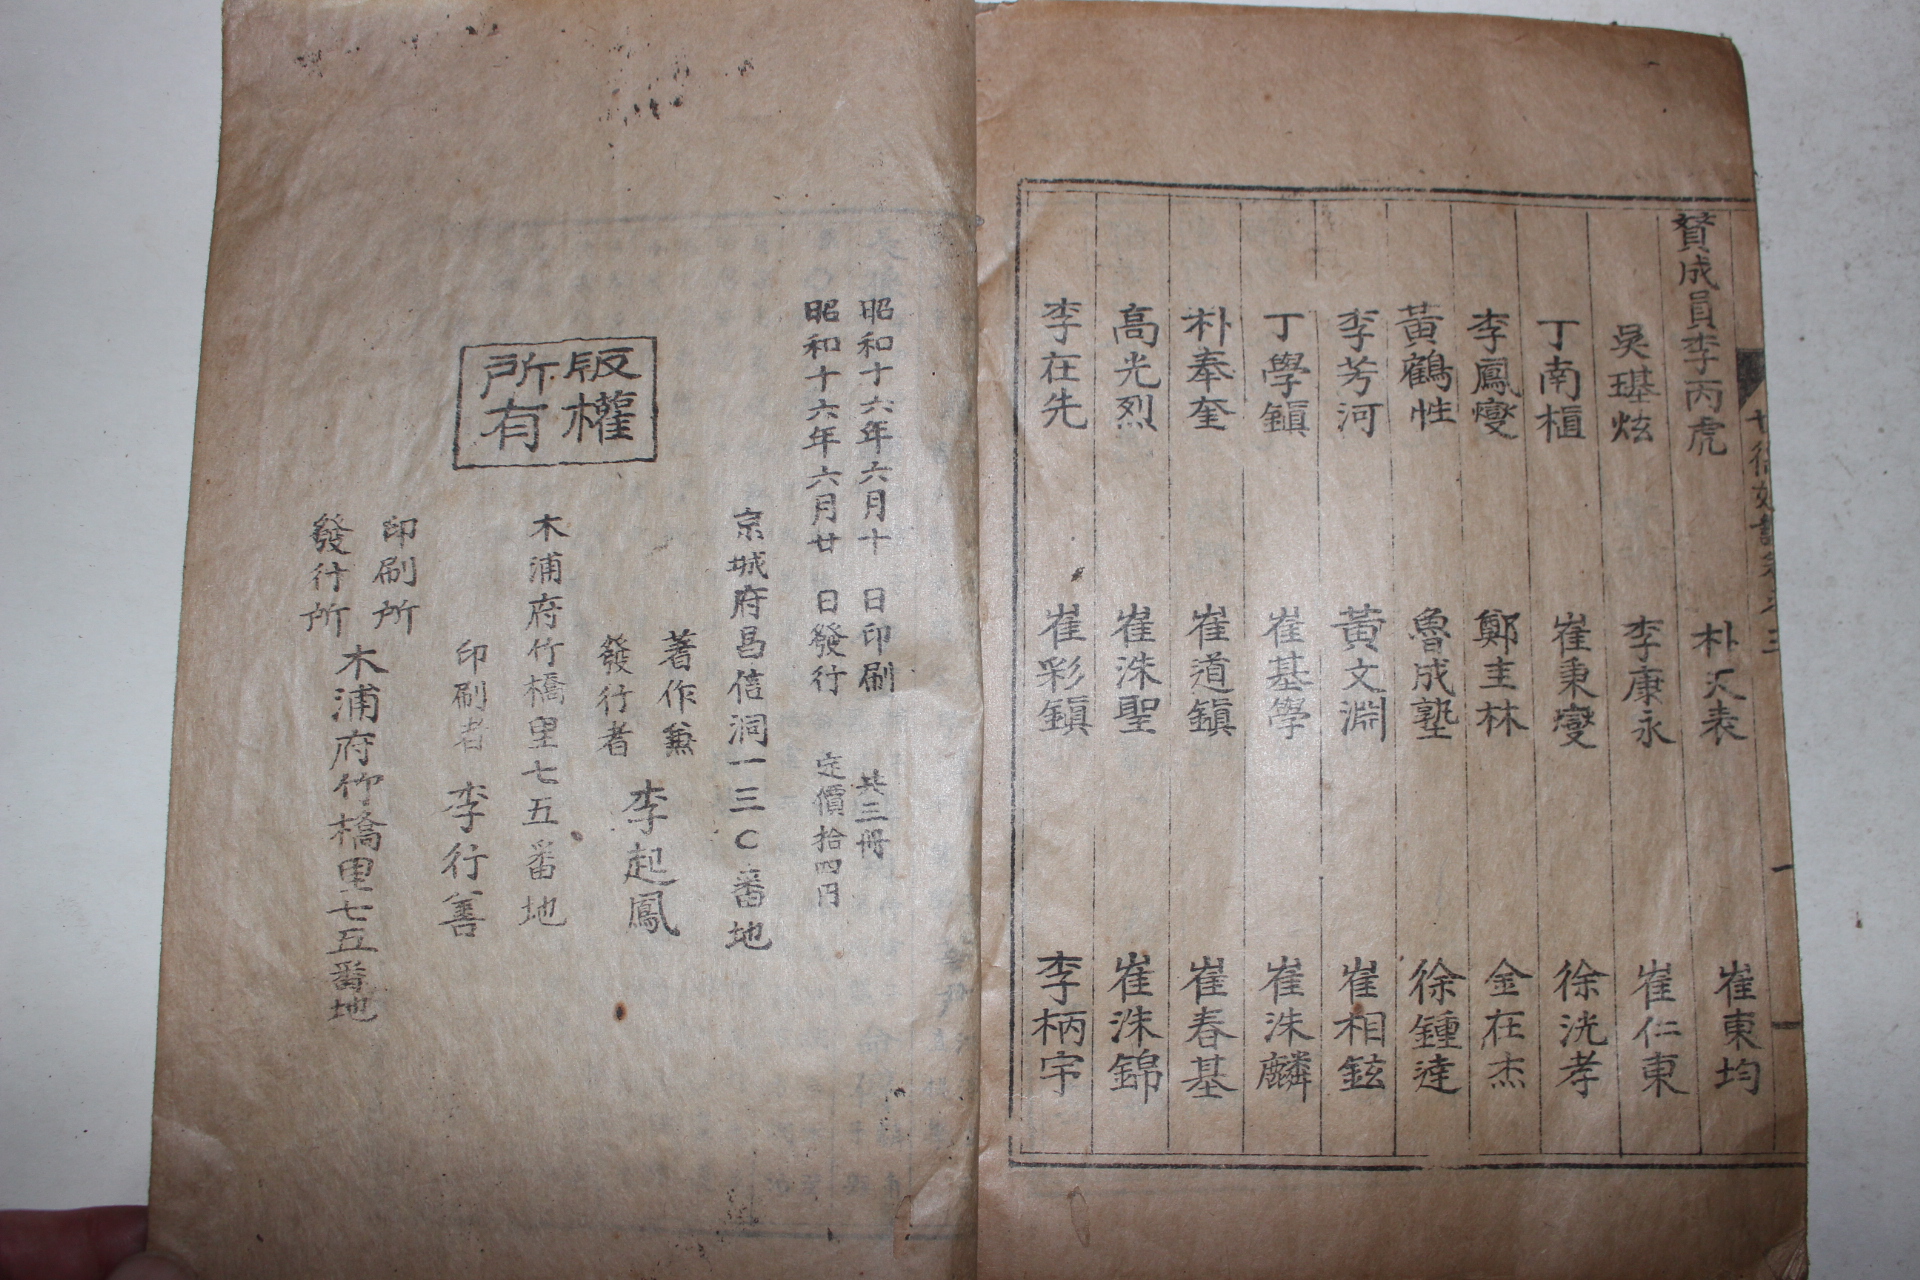 贊成員李丙虎 朴㕥表 崔東均
吳琪炫 李康永 崔仁東
丁南樞 崔秉燮 徐洸孝
李鳳燮 鄭圭林 金在杰
黃鶴性 魯成塾 徐鍾達
李芳河 黃文淵 崔相鉉
丁學鎭 崔基學 崔洙麟
朴奉奎 崔道鎭 崔春基
高光烈 崔洙聖 崔洙錦
李在先 崔彩鎭 李柄宇
昭和十六年六月十 日印刷 共三冊
昭和十六年六月廿 日發行 定價拾四円
京城府昌信洞一三〇番地
著作兼
發行者 李起鳳
木浦府竹橋里七五番地
印刷者 李行善
版權
所有
印刷所
發行所 木浦府竹橋里七五番地